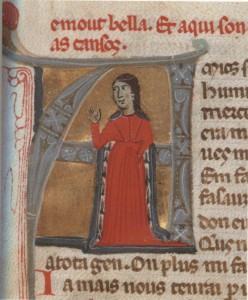 emout bella. Et aqui son
as cansos.
A
mos
hum
merce
era m
ues m
Em fa
falsur
don eu
Que n
atota gen. On plus mi fa
Ia mais nous tenrai p